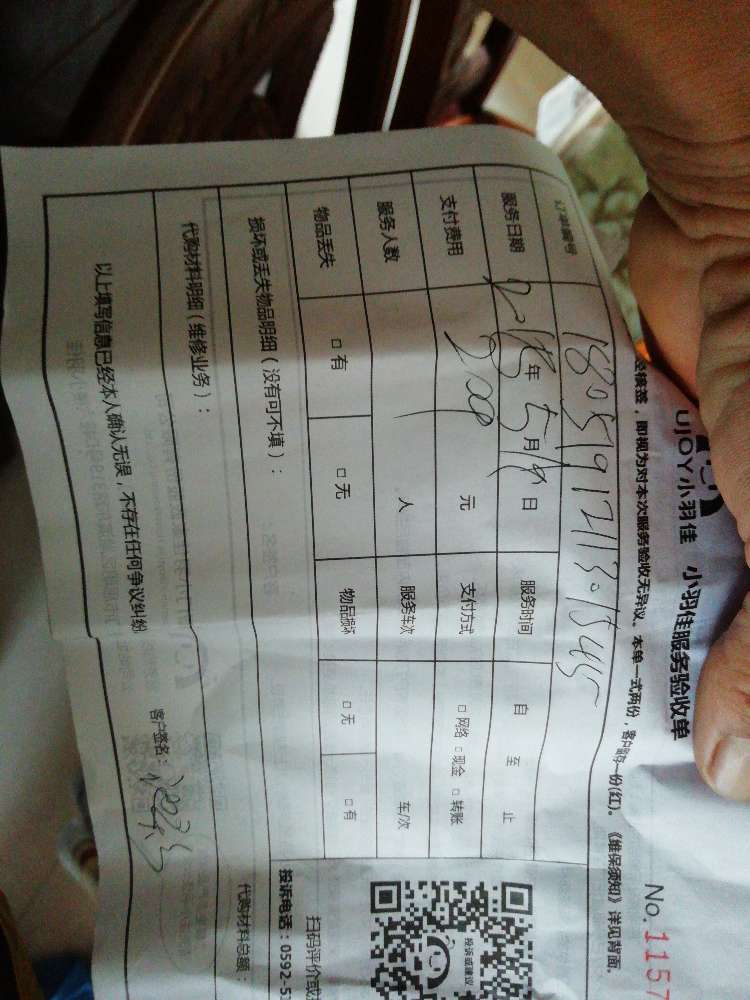 UJOY小羽佳 小羽佳服务验收单
No.1157
签，即视为对本次服务验收无异议。本单一式两份，客户留存一份(红)。《维保须知》详见背面。
订单编号
服务日期 2018年5月19日 服务时间 自 至 止
支付费用 200 元 支付方式 □ 网络 □ 现金 □ 转账
服务人数 人 服务车次 车/次
物品丢失 □ 有 □ 无 物品损坏 □ 无 □ 有
损坏或丢失物品明细（没有可不填）：
代购材料明细（维修业务）： 代购材料总额：
以上填写信息已经本人确认无误，不存在任何争议纠纷
客户签名：
投诉或建议
扫码评价或
投诉电话：0592-5